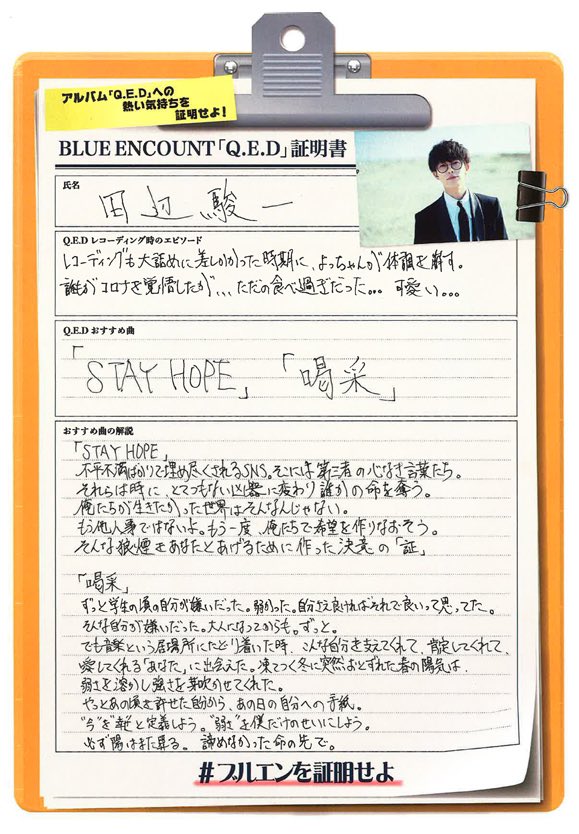 アルバム「Q.E.D」への
熱い気持ちを
証明せよ!
BLUE ENCOUNT「Q.E.D」証明書
氏名
田辺 駿一
Q.E.D レコーディング時のエピソード
レコーディングも大詰めに差しかかった時期に、よっちゃんが体調を崩す。
誰がコロナを覚悟したが... ただの食べ過ぎだった... 可愛い...
Q.E.D おすすめ曲
「STAY HOPE」「喝采」
おすすめ曲の解説
「STAY HOPE」
不平不満ばかりで埋め尽くされるSNS。そこには第三者の心なき言葉たち。
それらは時に、とてつもない凶器に変わり誰かの命を奪う。
俺たちが生きたかった世界はそんなんじゃない。
もう他人事ではないよ。もう一度、俺たちで希望を作りなおそう。
そんな狼煙をあなたとあげるために作った決意の「証」
「喝采」
ずっと学生の頃の自分が嫌いだった。弱かった。自分さえ良ければそれで良いって思ってた。
そんな自分が嫌いだった。大人になってからも。ずっと。
でも音楽という居場所にたどり着いた時、こんな自分を支えてくれて、肯定してくれて、
愛してくれる「あなた」に出会えた。凍てつく冬に突然おとずれた春の陽気は、
弱さを溶かし強さを芽吹かせてくれた。
やっとあの頃を許せた自分から、あの日の自分への手紙。
"今"を"幸"と定義しよう。"弱さ"を僕だけのせいにしよう。
必ず陽はまた昇る。 諦めなかった命の先で。
#ブルエンを証明せよ